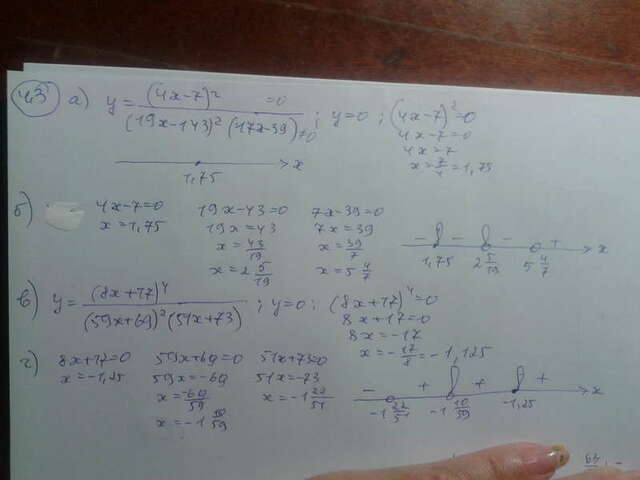 4.3 а) y = (4x-7)² = 0 / (19x-143)² (47x-39) ≠0 ; y=0 ; (4x-7)² = 0
4x-7=0
4x=7
x = 7/4 = 1,75
1,75 x
б) 4x-7=0 19x-43=0 7x-39=0
x=1,75 19x=43 7x=39
x = 43/19 x = 39/7
x = 2 5/19 x = 5 4/7
- - - + x
1,75 2 5/19 5 4/7
в) y = (8x+17)⁴ / (59x+69)² (51x+73) ; y=0 ; (8x+17)⁴ = 0
8x+17=0
8x=-17
x = -17/8 = -1,125
г) 8x+17=0 59x+69=0 51x+73=0
x=-1,25 59x=-69 51x=-73
x = -69/59 x = -1 22/51
x = -1 10/59
- + + + x
-1 22/51 -1 10/59 -1,25